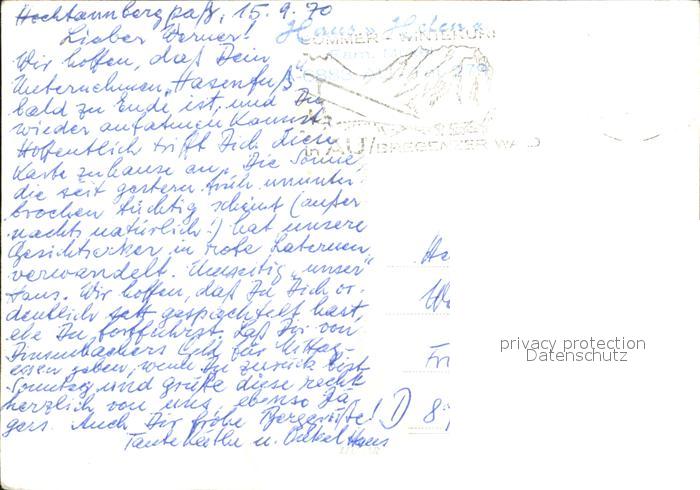 Hochtannbergpaß, 15.9.70
Lieber Werner!
Wir hoffen, daß Dein
Unternehmen „Hasenfuß"
bald zu Ende ist, und Du
wieder aufatmen kannst.
Hoffentlich trifft Dich diese
Karte zuhause an. Die Sonne,
die seit gestern früh ununter-
brochen tüchtig scheint (außer
nachts natürlich!) hat unsere
Gesichtserker in rote Laternen
verwandelt. Umseitig „unser"
Haus. Wir hoffen, daß Du Dich or-
dentlich satt gespachtelt hast,
ehe Du fortfährst. Laß Dir von
Geld für Mittag-
essen geben, wenn Du zurück bist
Sonntag und grüße diese recht
herzlich von uns, ebenso
Auch Dir frohe Berggrüße!
Tante Käthe u. Onkel Hans
SOMMER WINTER
IN AU/BREGENZER WALD
D 8
privacy protection
Datenschutz